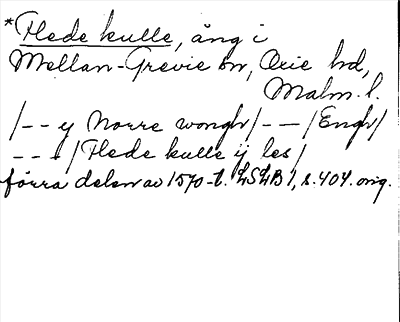 *Flede kulle, äng i
Mellan-Grevie sn, Oxie hd,
Malm. l.
/-- y Norre wongh/ -- /Engh/
--- /Flede kulle ij les/
förra delen av 1570-t. LSLB 1, s. 404. orig.